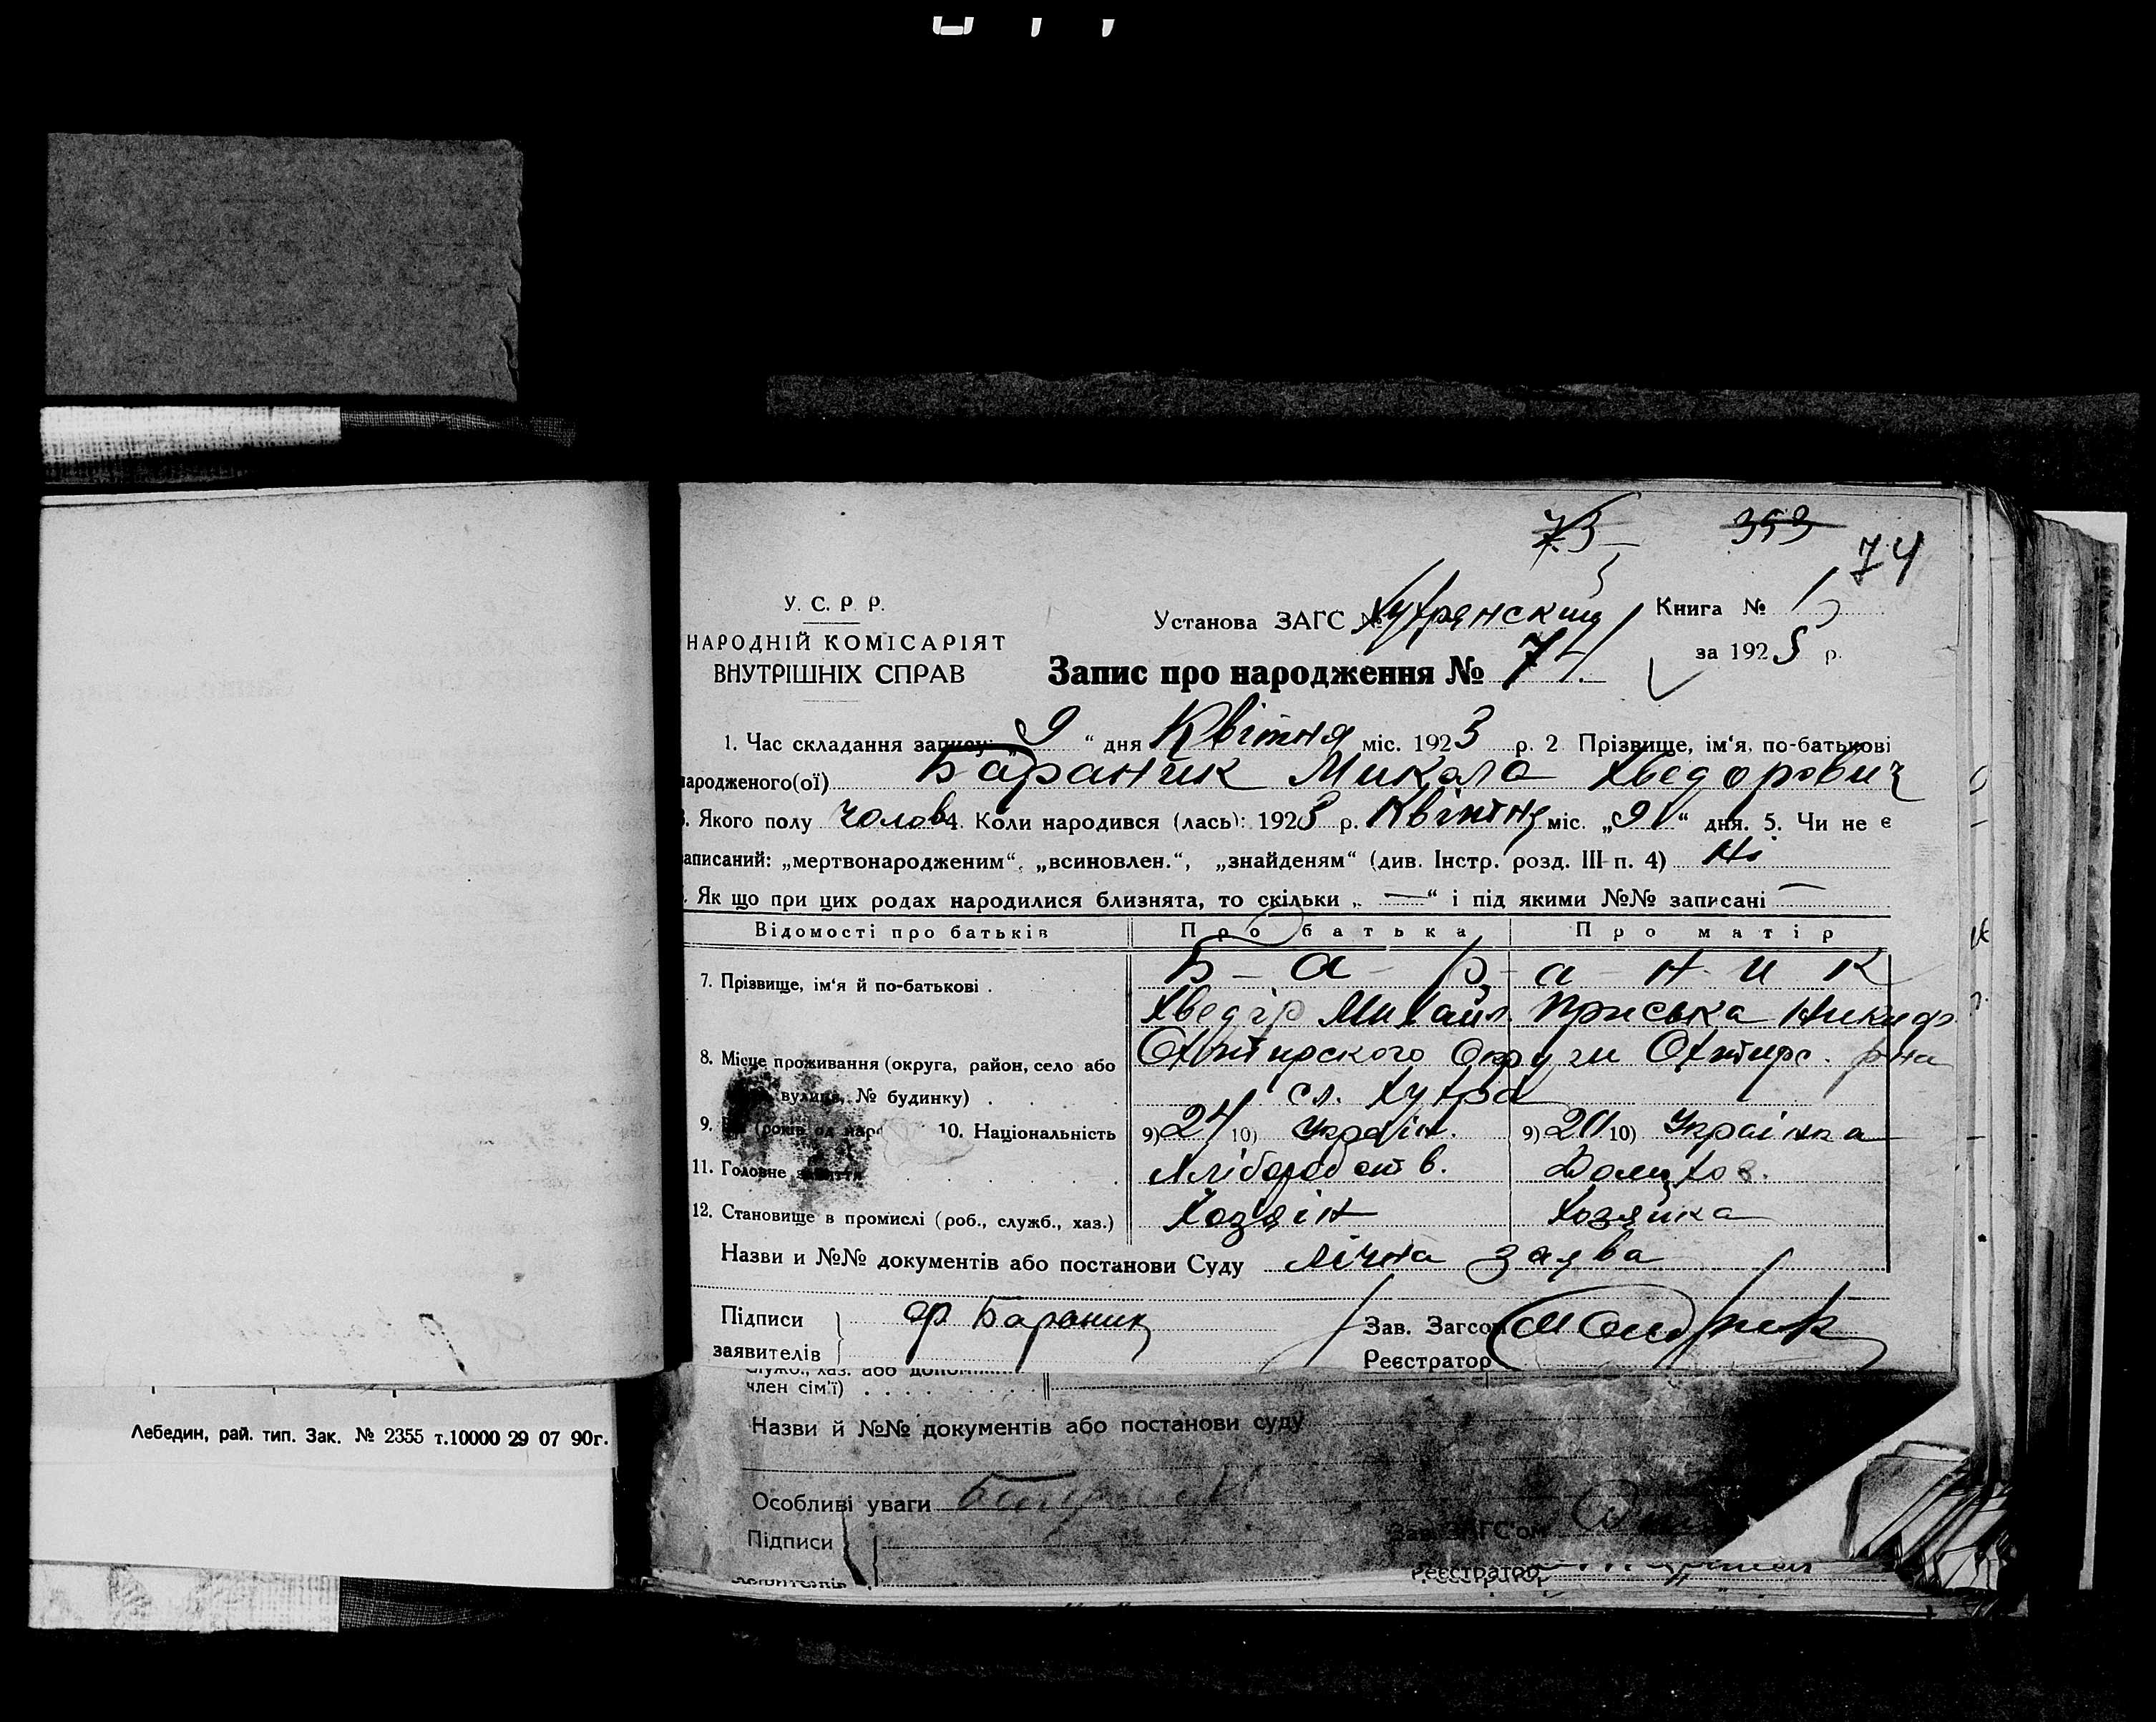 73 353
74
У. С. Р. Р.
НАРОДНІЙ КОМІСАРІЯТ
ВНУТРІШНІХ СПРАВ
Установа ЗАГС № Хухрянский Книга № 1
за 1923 р.
Запис про народження № 74.
1. Час складання запису: „9“ дня Квітня міс. 1923 р. 2 Прізвище, ім‘я, по-батькові
народженого(ої) Бараник Микола Хведорович
3. Якого полу чолов 4. Коли народився (лась): 1923 р. Квітня міс. „9“ дня. 5. Чи не є
записаний: „мертвонародженим“, „всиновлен.“, „знайденям“ (див. Інстр. розд. III п. 4) Ні
. Як що при цих родах народилися близнята, то скільки „ — “ і під якими №№ записані —
Відомості про батьків Про батька Про матір
7. Прізвище, ім‘я й по-батькові . Б-а-р-а-н-и-к
Хведір Михайл. Приська Никиф
8. Місце проживання (округа, район, село або Охтирского Округи Охтирс. р-на
вулиця, № будинку) . сл. Хухра
9. (років од нар 10. Національність 9) 24 10) Україн. 9) 20 10) Українка
11. Головне заняття Хліборобств. Домухов.
12. Становище в промислі (роб., служб., хаз.) Хозяїн Хозяйка
Назви и №№ документів або постанови Суду Лічна заява
Підписи Ф Бараник Зав. Загсом
заявителів Реєстратор
член сім'ї)
Лебедин, рай. тип. Зак. № 2355 т.10000 29 07 90г.
Назви й №№ документів або постанови суду
Особливі уваги
Підписи Зав. ЗАГС'ом
Реєстратор